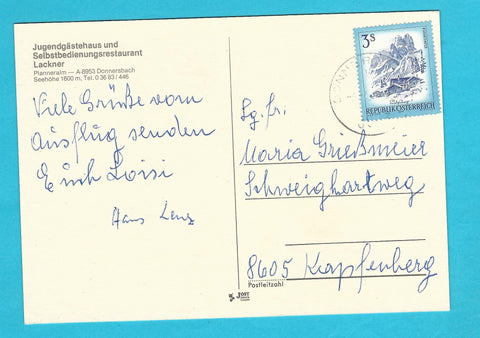 Jugendgästehaus und
Selbstbedienungsrestaurant
Lackner
Planneralm — A-8953 Donnersbach
Seehöhe 1600 m, Tel. 0 36 83 / 446
Viele Grüße vom
Ausflug senden
Euch Loisi
Hans Lenz
3S
REPUBLIK ÖSTERREICH
Sg. Fr.
Maria Grießmeier
Schweighartweg
8605 Kapfenberg
Postleitzahl
JOST